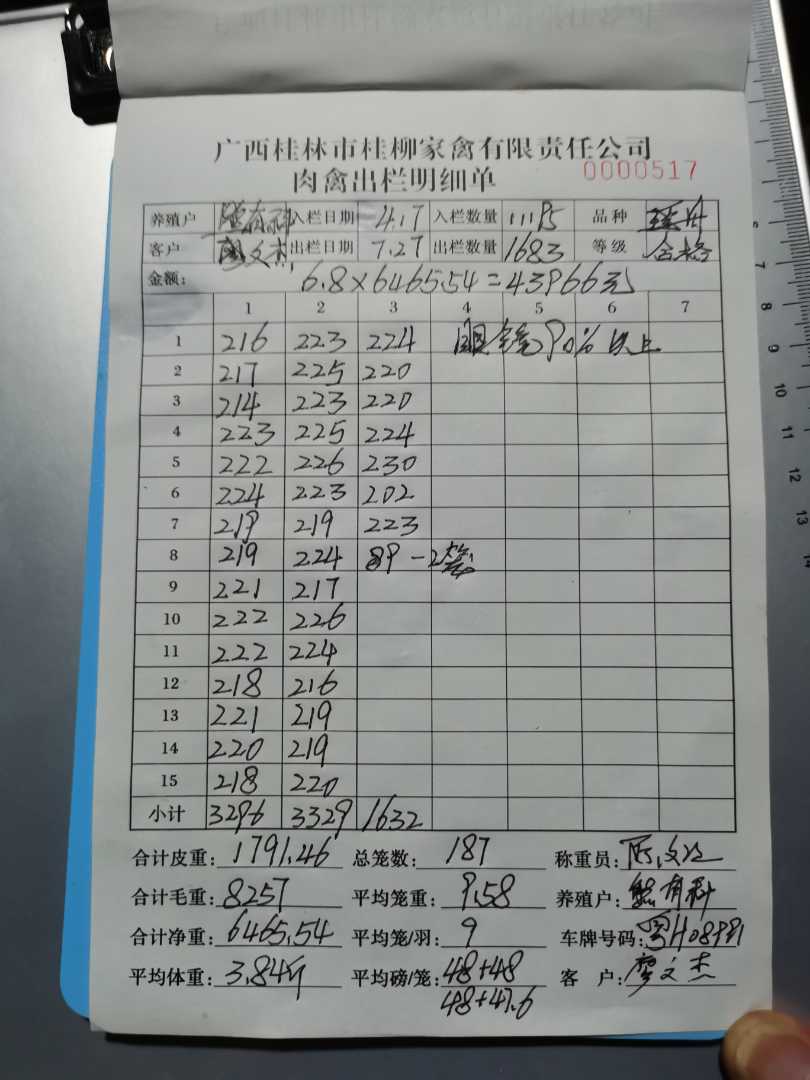 广西桂林市桂柳家禽有限责任公司
肉禽出栏明细单 0000517
养殖户 有科 入栏日期 4.17 入栏数量 品种
客户 廖文杰 出栏日期 7.27 出栏数量 1683 等级 合格
金额: 6.8×6465.54=43966元
1 2 3 4 5 6 7
1 216 223 224 眼镜90%以上
2 217 225 220
3 214 223 220
4 223 225 224
5 222 226 230
6 224 223 202
7 219 219 223
8 219 224 89-2笼
9 221 217
10 222 226
11 222 224
12 218 216
13 221 219
14 220 219
15 218 220
小计 3296 3329 1632
合计皮重: 1791.46 总笼数: 187 称重员:
合计毛重: 8257 平均笼重: 9.58 养殖户: 熊有科
合计净重: 6465.54 平均笼/羽: 9 车牌号码:
平均体重: 3.84斤 平均磅/笼: 48+48 客 户: 廖文杰
48+47.6